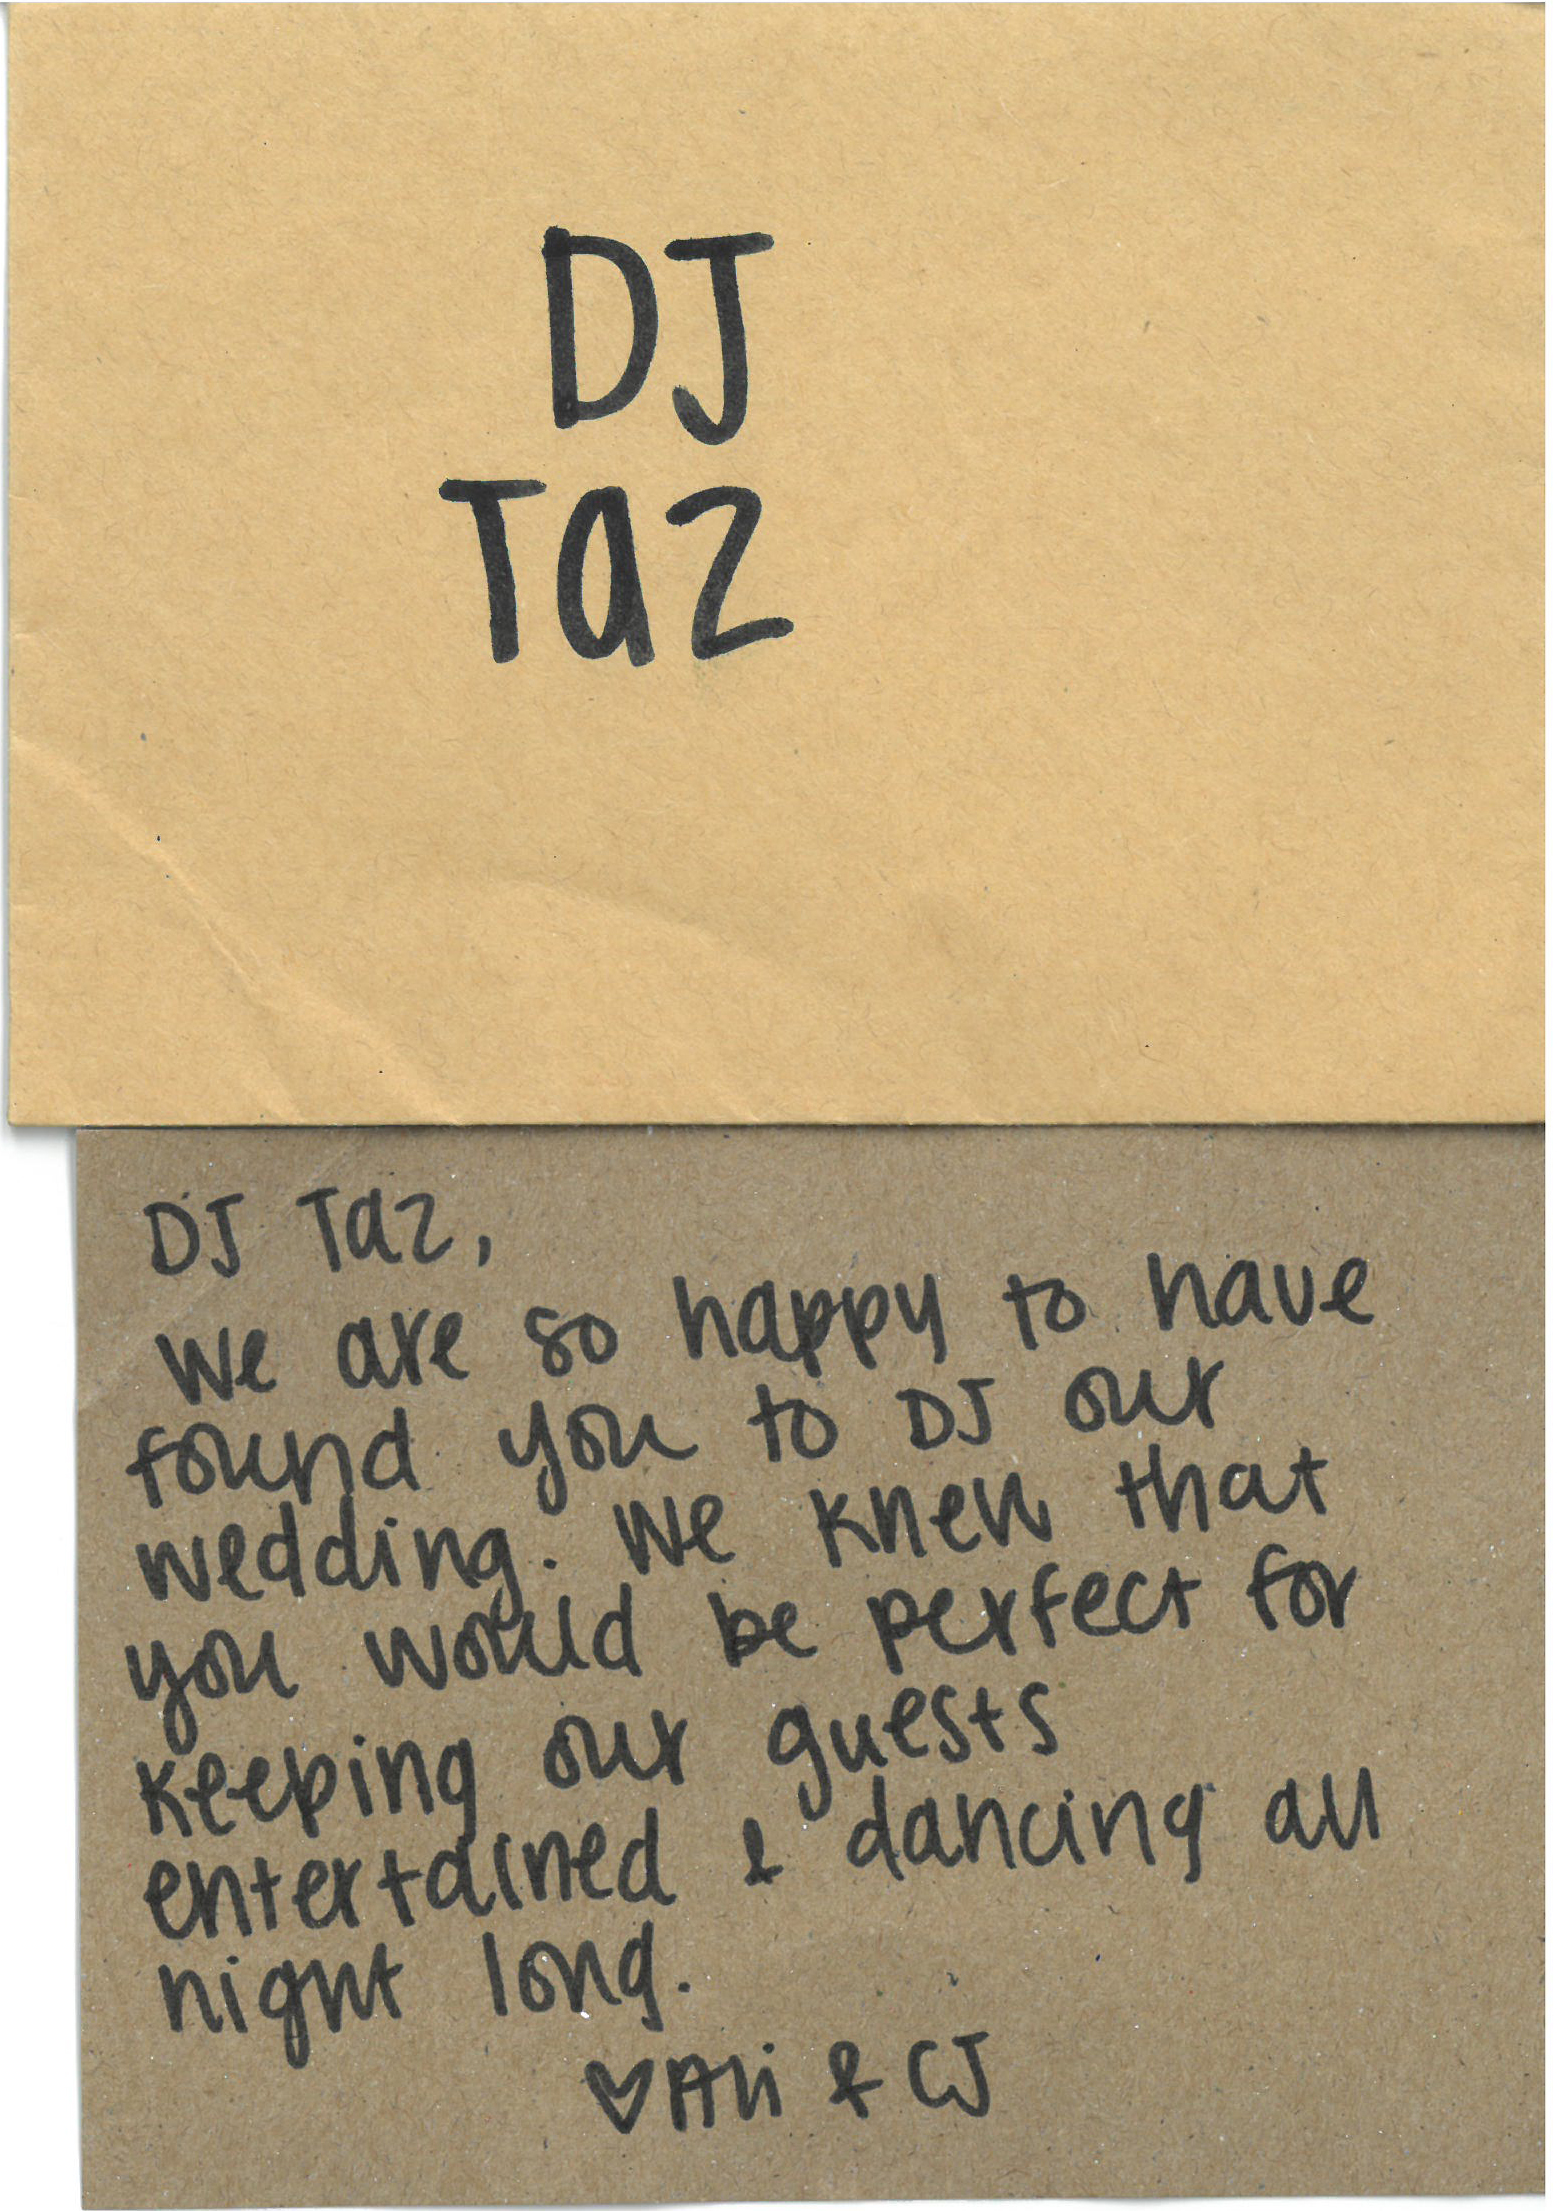 DJ
Taz
DJ Taz,
We are so happy to have
found you to DJ our
wedding. We knew that
you would be perfect for
keeping our guests
entertained & dancing all
night long.
♡Ali & CJ